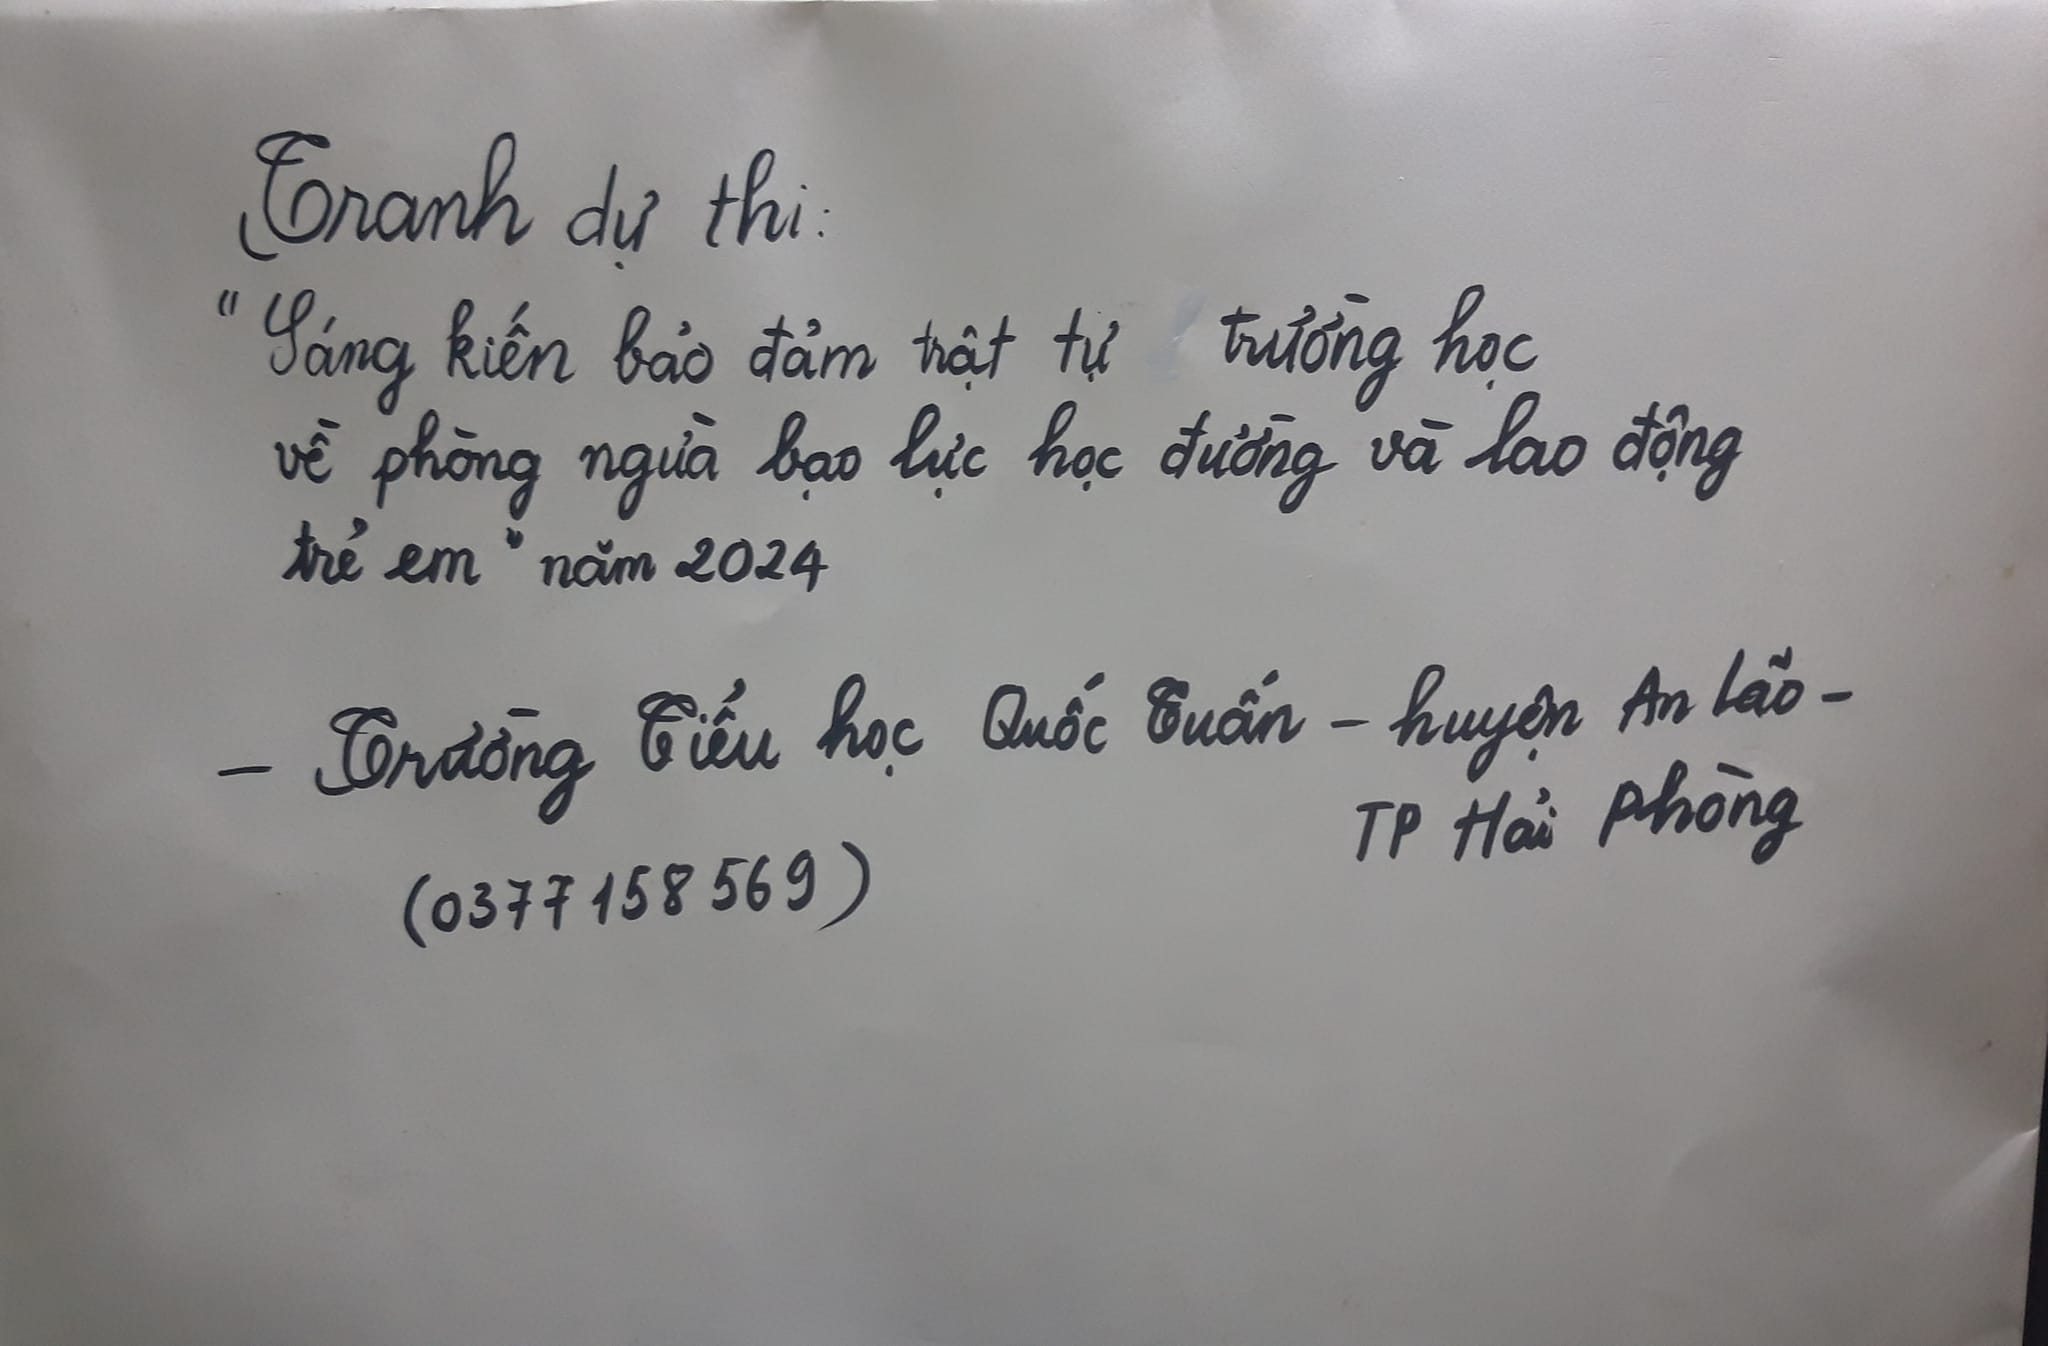 Tranh dự thi:
"Sáng kiến bảo đảm trật tự trường học
về phòng ngừa bạo lực học đường và lao động
trẻ em" năm 2024
- Trường Tiểu học Quốc Tuấn - huyện An Lão -
TP Hải Phòng
(0377 158 569)